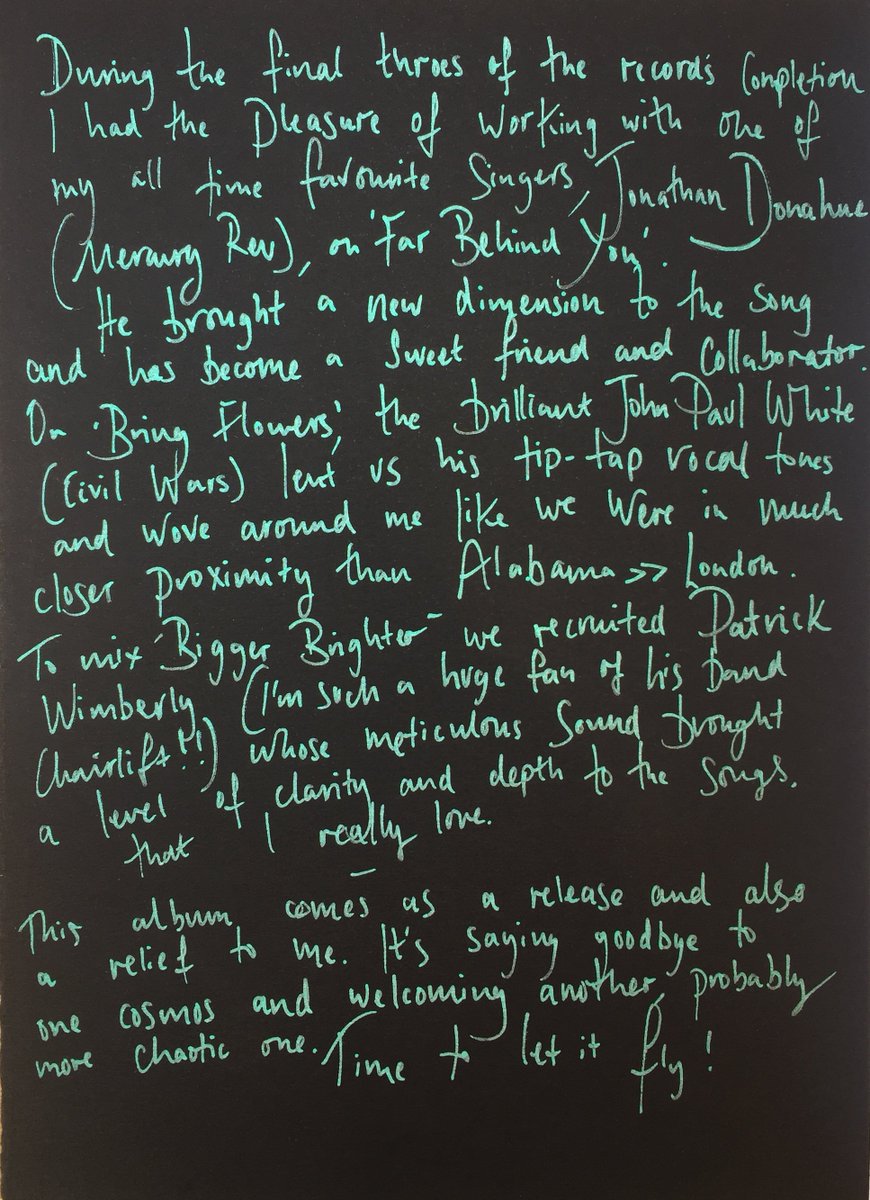 During the final throes of the record's completion
I had the pleasure of working with one of
my all time favourite singers, Jonathan Donahue
(Mercury Rev), on 'Far Behind You'.
He brought a new dimension to the song
and has become a sweet friend and collaborator.
On 'Bring Flowers', the brilliant John Paul White
(Civil Wars) lent us his tip-tap vocal tones
and wove around me like we were in much
closer proximity than Alabama >> London.
To mix 'Bigger Brighter' we recruited Patrick
Wimberly (I'm such a huge fan of his band
Chairlift!!) whose meticulous sound brought
a level of clarity and depth to the songs.
that I really love.
—
This album comes as a release and also
a relief to me. It's saying goodbye to
one cosmos and welcoming another, probably
more chaotic one. Time to let it fly!